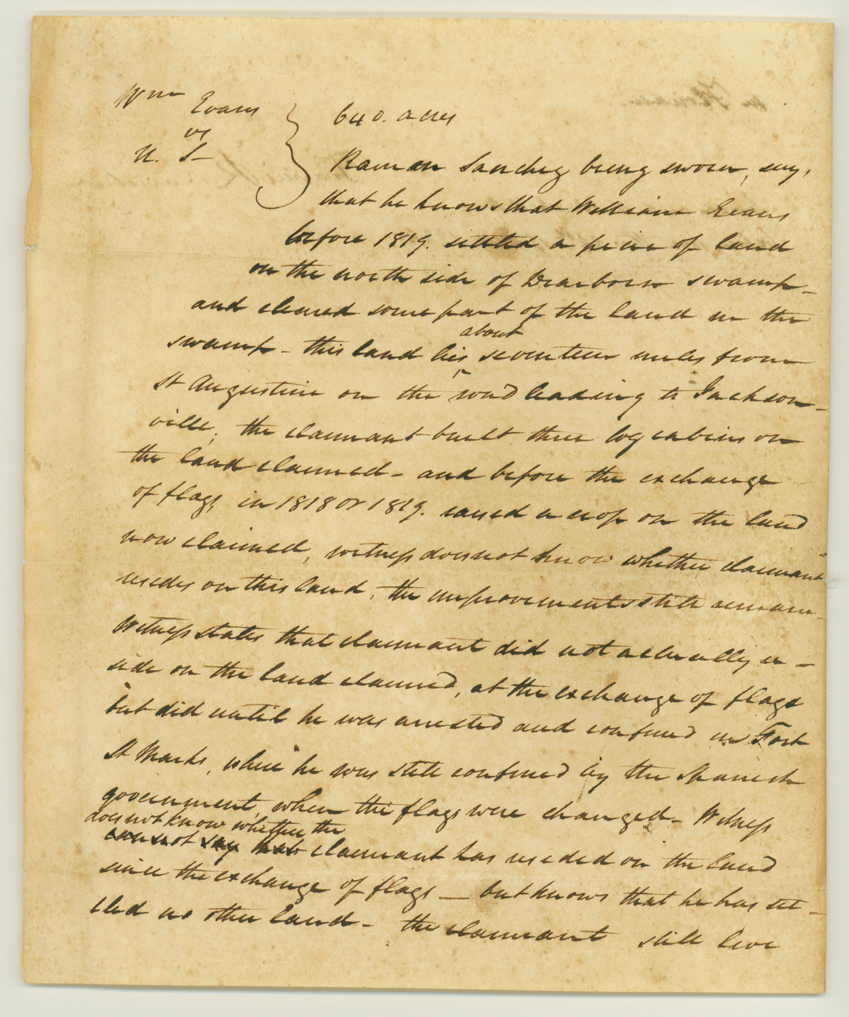 Wm Evans
vs
U. S—
640. acres
Raman Sanchez being sworn, says,
that he knows that William Evans
before 1819. settled a peice of land
on the north side of Dearborn swamp—
and cleared some part of the land in the
swamp — this land lies about seventeen miles from
St Augustine on the road leading to Jackson-
ville, the claimant built three log cabins on
the land claimed — and before the exchange
of flags in 1818 or 1819. raised a crop on the land
now claimed, witness does not know whether claimant
resides on this land, the improvements still remain.
Witness states that claimant did not actually re-
side on the land claimed, at the exchange of flags
but did until he was arrested and confined in Fort
St Marks, where he was still confined by the Spanish
government when the flags were changed — Witness
does not know whether the
cannot say that claimant has resided on the land
since the exchange of flags — but knows that he has set-
tled no other land — the claimant still live